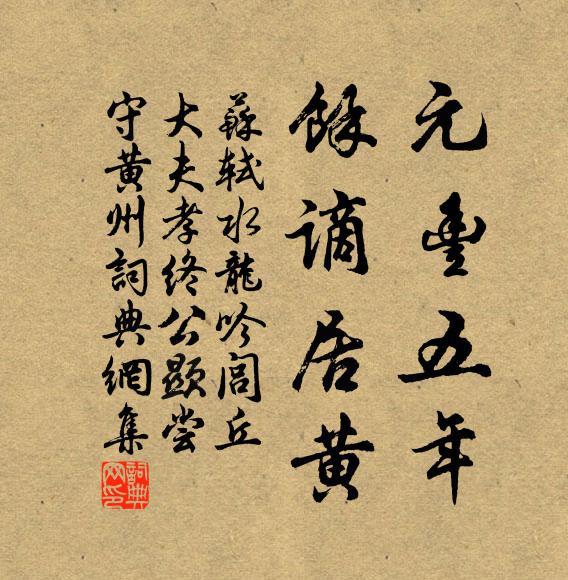 元豐五年
餘謫居黃
蘇軾水龍吟閭丘
大夫孝終公顯嘗
守黃州詞典網集
詞典
网印